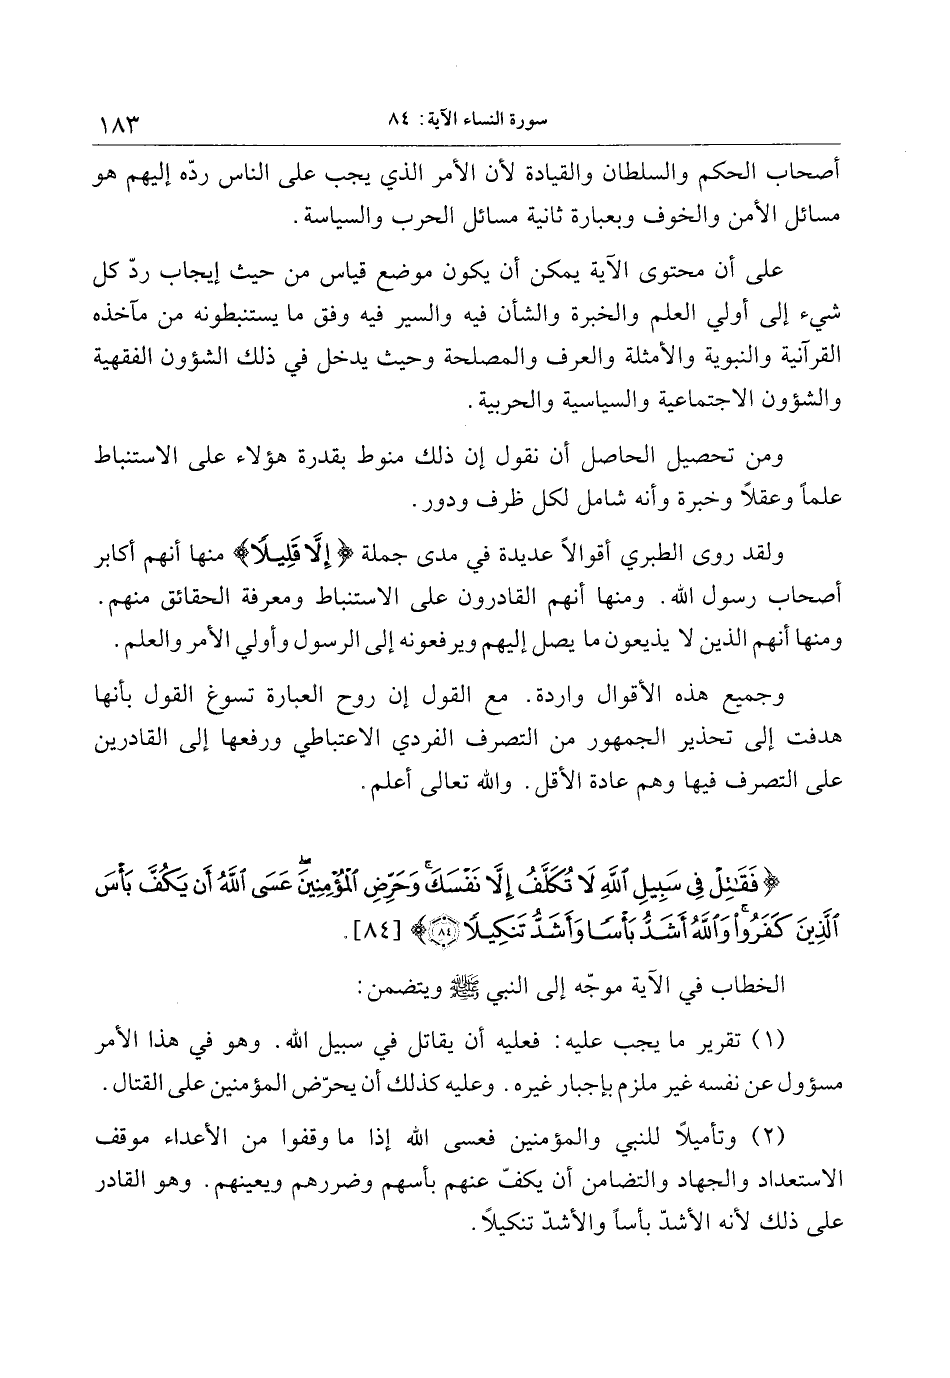 سورة النساء الآية: ٨٤
١٨٣
أصحاب الحكم والسلطان والقيادة لأن الأمر الذي يجب على الناس ردّه إليهم هو
مسائل الأمن والخوف وبعبارة ثانية مسائل الحرب والسياسة.
على أن محتوى الآية يمكن أن يكون موضع قياس من حيث إيجاب ردّ كل
شيء إلى أولي العلم والخبرة والشأن فيه والسير فيه وفق ما يستنبطونه من مآخذه
القرآنية والنبوية والأمثلة والعرف والمصلحة وحيث يدخل في ذلك الشؤون الفقهية
والشؤون الاجتماعية والسياسية والحربية.
ومن تحصيل الحاصل أن نقول إن ذلك منوط بقدرة هؤلاء على الاستنباط
علماً وعقلاً وخبرة وأنه شامل لكل ظرف ودور.
ولقد روى الطبري أقوالاً عديدة في مدى جملة ﴿إِلَّا قَلِيلًا﴾ منها أنهم أكابر
أصحاب رسول الله. ومنها أنهم القادرون على الاستنباط ومعرفة الحقائق منهم.
ومنها أنهم الذين لا يذيعون ما يصل إليهم ويرفعونه إلى الرسول وأولي الأمر والعلم.
وجميع هذه الأقوال واردة. مع القول إن روح العبارة تسوغ القول بأنها
هدفت إلى تحذير الجمهور من التصرف الفردي الاعتباطي ورفعها إلى القادرين
على التصرف فيها وهم عادة الأقل. والله تعالى أعلم.
﴿فَقَٰتِلْ فِى سَبِيلِ ٱللَّهِ لَا تُكَلَّفُ إِلَّا نَفْسَكَ ۚ وَحَرِّضِ ٱلْمُؤْمِنِينَ ۖ عَسَى ٱللَّهُ أَن يَكُفَّ بَأْسَ
ٱلَّذِينَ كَفَرُوا۟ ۚ وَٱللَّهُ أَشَدُّ بَأْسًا وَأَشَدُّ تَنكِيلًا ٨٤﴾ [٨٤].
الخطاب في الآية موجّه إلى النبي ﷺ ويتضمن:
(١) تقرير ما يجب عليه: فعليه أن يقاتل في سبيل الله. وهو في هذا الأمر
مسؤول عن نفسه غير ملزم بإجبار غيره. وعليه كذلك أن يحرّض المؤمنين على القتال.
(٢) وتأميلاً للنبي والمؤمنين فعسى الله إذا ما وقفوا من الأعداء موقف
الاستعداد والجهاد والتضامن أن يكفّ عنهم بأسهم وضررهم ويعينهم. وهو القادر
على ذلك لأنه الأشدّ بأساً والأشدّ تنكيلاً.